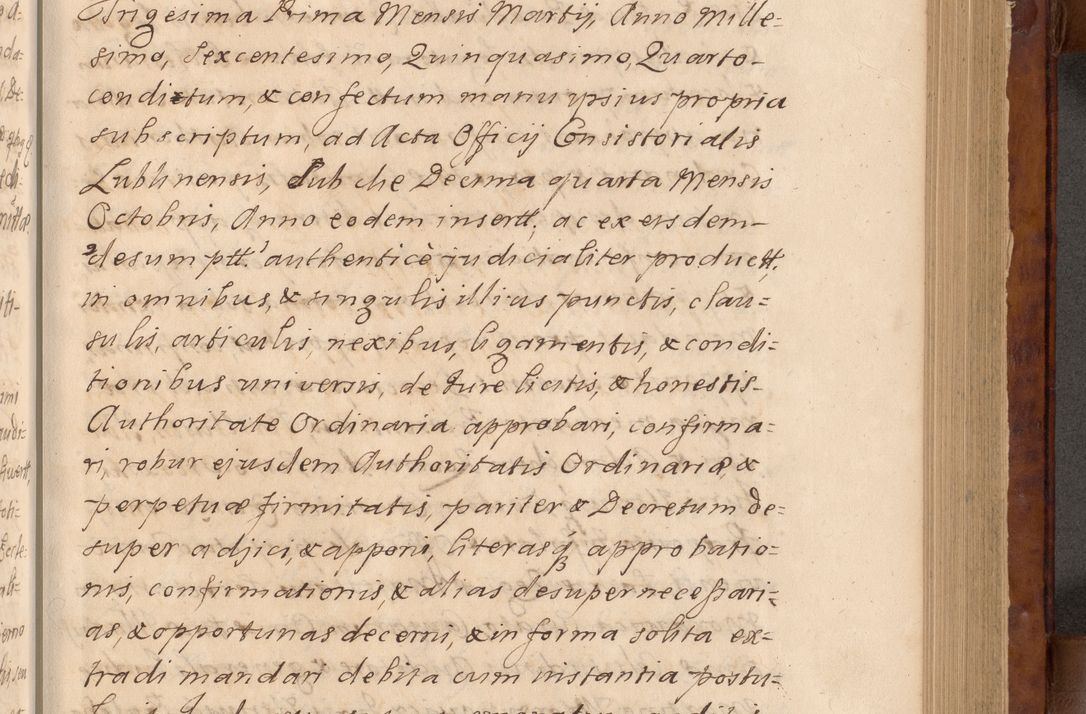 Trigesima Prima Mensis Martij, Anno Mille=
simo, Sexcentesimo, Quinquasimo, Quarto-
condictum, & confectum manu ypsius propria
subscriptum, ad Acta Officij Consistorialis
Lublinensis, Sub die Decima quarta Mensis
Octobris, Anno eodem insertt, ac ex eisdem-
desumptt. authenticè judicialiter producttt,
in omnibus, & singulis illius punctis, clau=
sulis, articulis, nexibus, ligamentis, & condi=
tionibus universis, de Iure licitis, & honestis-
Authoritate Ordinaria approbari, confirma=
ri, robur ejusdem Authoritatis Ordinariæ, &
perpetuæ firmitatis, pariter & Decretum de=
super adjici, & apponi, literasq́ꝫ approbatio=
nis, confirmationis, & alias desuper necessari=
as, & opportunas decerni, & in forma solita ex=
tradi mandari debita cum instantia postu=